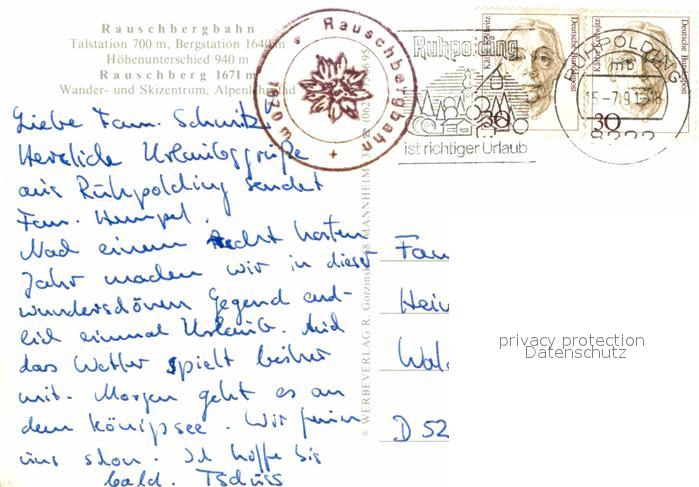 Rauschbergbahn
Talstation 700 m, Bergstation 1640 m
Höhenunterschied 940 m
Rauschberg 1671 m
Wander- und Skizentrum, Alpenlehrpfad
Rauschbergbahn
1670 m
Ruhpolding
ist richtiger Urlaub
Käthe Kollwitz
Deutsche Bundespost
30
Käthe Kollwitz
Deutsche Bundespost
30
RUHPOLDING
mb
15-7.91-18
8222
Liebe Fam. Schmitz
Herzliche Urlaubsgrüße
aus Ruhpolding sendet
Fam. Hempel.
Nach einem recht harten
Jahr machen wir in dieser
wunderschönen Gegend end-
lich einmal Urlaub. Auch
das Wetter spielt bisher
mit. Morgen geht es an
dem Königsee. Wir freuen
uns schon. Ich hoffe bis
bald. Tschüss
© WERBEVERLAG R.
68 MANNHEIM
Fam
Hein
Wal
D 52
privacy protection
Datenschutz